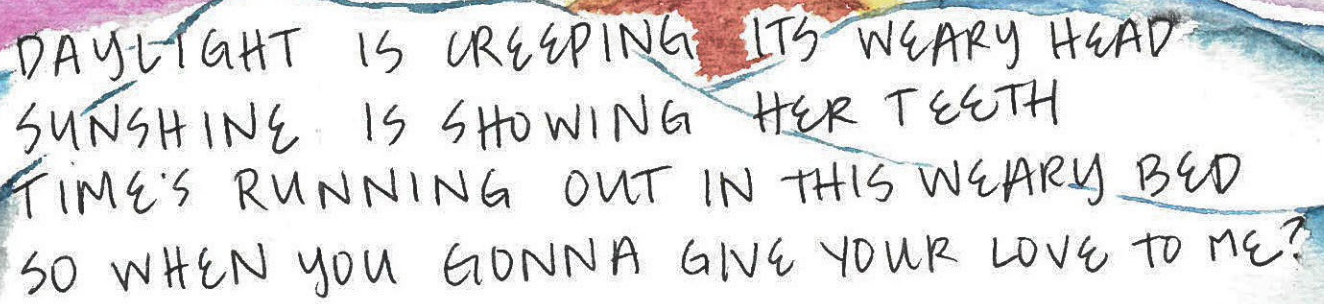 DAYLIGHT IS CREEPING ITS WEARY HEAD
SUNSHINE IS SHOWING HER TEETH
TIME'S RUNNING OUT IN THIS WEARY BED
SO WHEN YOU GONNA GIVE YOUR LOVE TO ME?